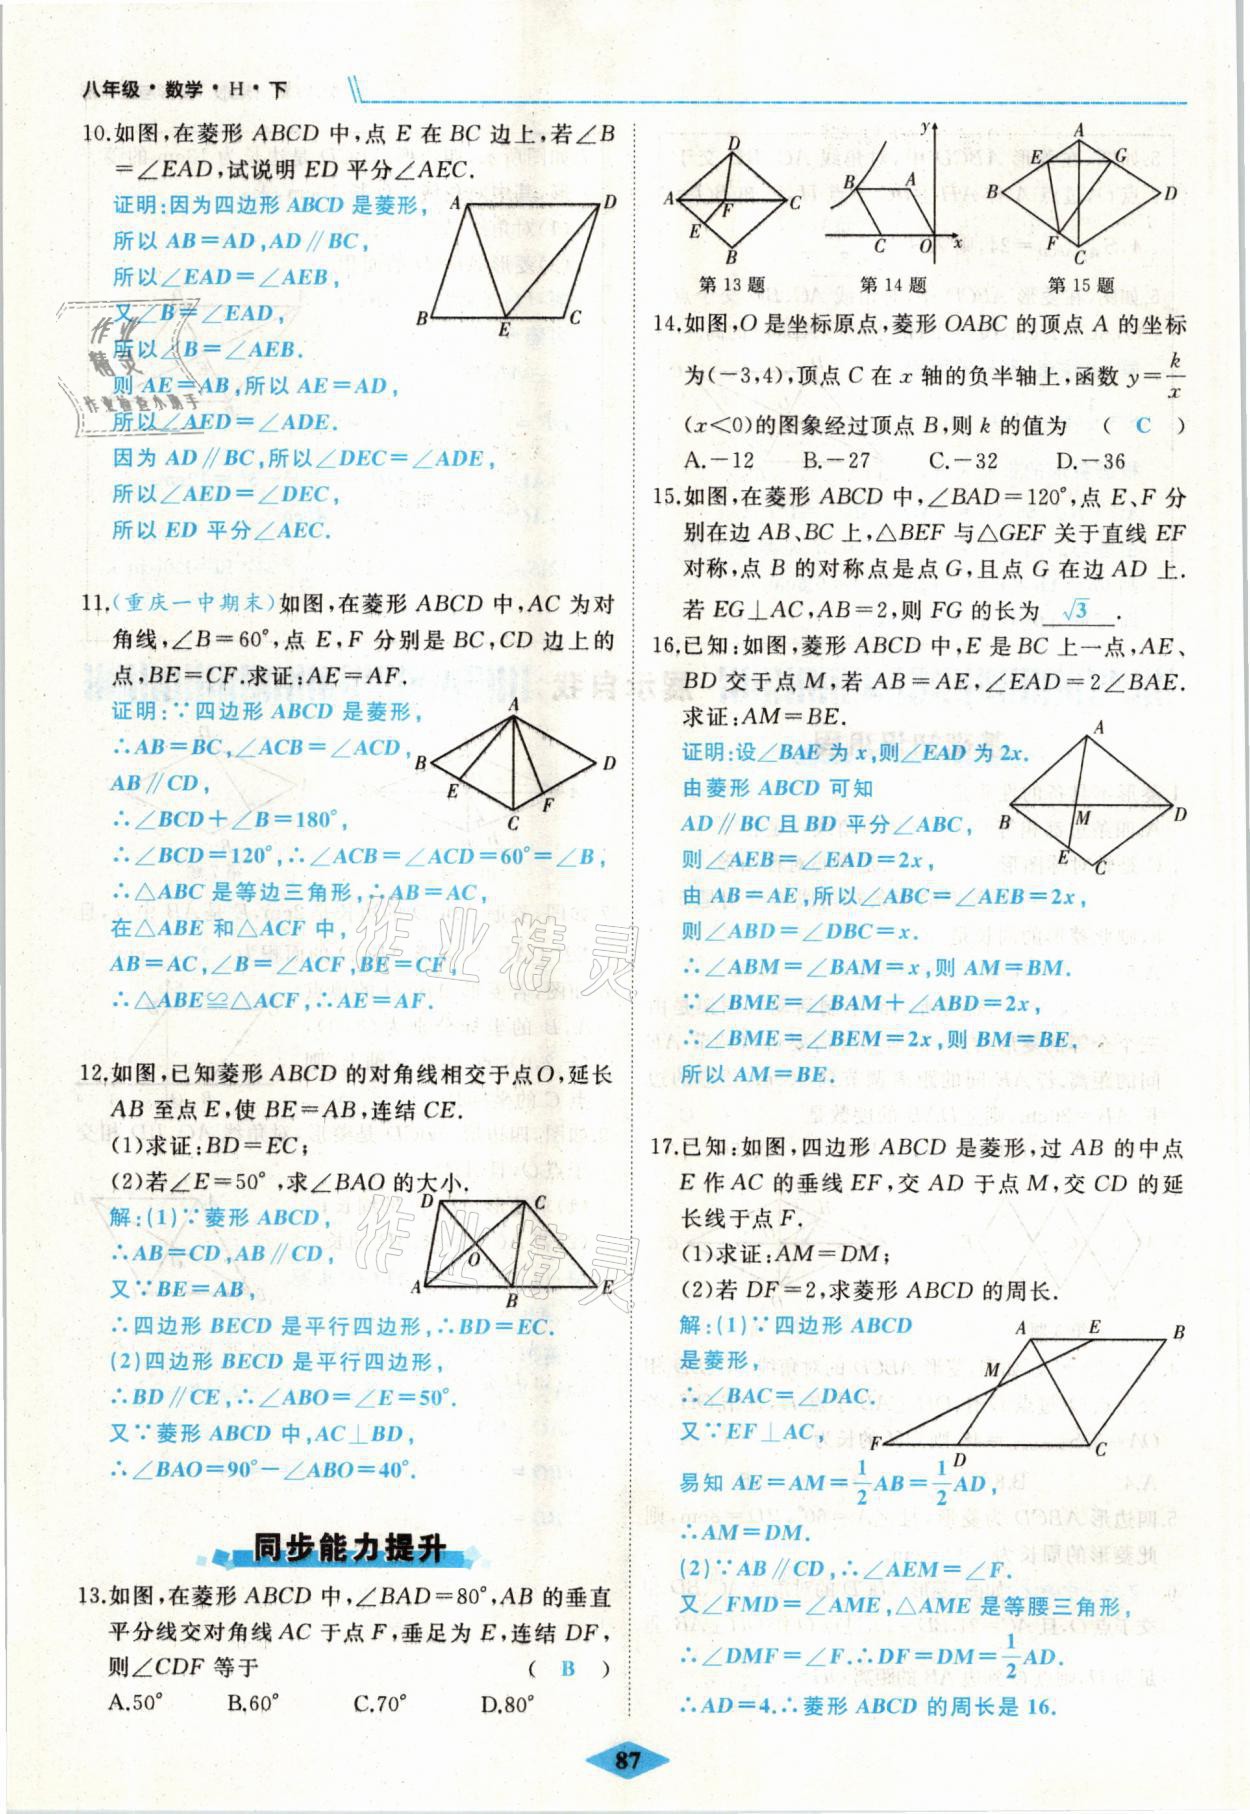 八年级·数学·H·下
10.如图,在菱形 ABCD 中,点 E 在 BC 边上,若∠B
=∠EAD,试说明 ED 平分∠AEC.
证明:因为四边形 ABCD 是菱形,
所以 AB=AD,AD∥BC,
所以∠EAD=∠AEB,
又∠B=∠EAD,
所以∠B=∠AEB.
则 AE=AB,所以 AE=AD,
所以∠AED=∠ADE.
因为 AD∥BC,所以∠DEC=∠ADE,
所以∠AED=∠DEC,
所以 ED 平分∠AEC.
A D
B E C
11.(重庆一中期末)如图,在菱形 ABCD 中,AC 为对
角线,∠B=60°,点 E,F 分别是 BC,CD 边上的
点,BE=CF.求证:AE=AF.
证明:∵四边形 ABCD 是菱形,
∴AB=BC,∠ACB=∠ACD,
AB∥CD,
∴∠BCD+∠B=180°,
∴∠BCD=120°,∴∠ACB=∠ACD=60°=∠B,
∴△ABC 是等边三角形,∴AB=AC,
在△ABE 和△ACF 中,
AB=AC,∠B=∠ACF,BE=CF,
∴△ABE≌△ACF,∴AE=AF.
A
B D
E F
C
12.如图,已知菱形 ABCD 的对角线相交于点O,延长
AB 至点 E,使 BE=AB,连结 CE.
(1)求证:BD=EC;
(2)若∠E=50°,求∠BAO 的大小.
解:(1)∵菱形 ABCD,
∴AB=CD,AB∥CD,
又∵BE=AB,
∴四边形 BECD 是平行四边形,∴BD=EC.
(2)四边形 BECD 是平行四边形,
∴BD∥CE,∴∠ABO=∠E=50°.
又∵菱形 ABCD 中,AC⊥BD,
∴∠BAO=90°-∠ABO=40°.
D C
O
A B E
同步能力提升
13.如图,在菱形 ABCD 中,∠BAD=80°,AB 的垂直
平分线交对角线 AC 于点 F,垂足为 E,连结 DF,
则∠CDF 等于 ( B )
A.50° B.60° C.70° D.80°
D
A F C
E
B
第13题
y
B A
C O x
第14题
A
E G
B D
F
C
第15题
14.如图,O 是坐标原点,菱形 OABC 的顶点 A 的坐标
为(-3,4),顶点 C 在 x 轴的负半轴上,函数 y=k/x
(x<0)的图象经过顶点 B,则 k 的值为 ( C )
A.-12 B.-27 C.-32 D.-36
15.如图,在菱形 ABCD 中,∠BAD=120°,点 E、F 分
别在边 AB、BC 上,△BEF 与△GEF 关于直线 EF
对称,点 B 的对称点是点 G,且点 G 在边 AD 上.
若 EG⊥AC,AB=2,则 FG 的长为 √3 .
16.已知:如图,菱形 ABCD 中,E 是 BC 上一点,AE、
BD 交于点 M,若 AB=AE,∠EAD=2∠BAE.
求证:AM=BE.
证明:设∠BAE 为 x,则∠EAD 为 2x.
由菱形 ABCD 可知
AD∥BC 且 BD 平分∠ABC,
则∠AEB=∠EAD=2x,
由 AB=AE,所以∠ABC=∠AEB=2x,
则∠ABD=∠DBC=x.
∴∠ABM=∠BAM=x,则 AM=BM.
∵∠BME=∠BAM+∠ABD=2x,
∴∠BME=∠BEM=2x,则 BM=BE,
所以 AM=BE.
A
B M D
E
C
17.已知:如图,四边形 ABCD 是菱形,过 AB 的中点
E 作 AC 的垂线 EF,交 AD 于点 M,交 CD 的延
长线于点 F.
(1)求证:AM=DM;
(2)若 DF=2,求菱形 ABCD 的周长.
解:(1)∵四边形 ABCD
是菱形,
∴∠BAC=∠DAC.
又∵EF⊥AC,
易知 AE=AM=1/2AB=1/2AD,
∴AM=DM.
(2)∵AB∥CD,∴∠AEM=∠F.
又∠FMD=∠AME,△AME 是等腰三角形,
∴∠DMF=∠F.∴DF=DM=1/2AD.
∴AD=4.∴菱形 ABCD 的周长是 16.
A E B
M
F D C
87
作业精灵
作业检查小助手
作业精灵
作业精灵